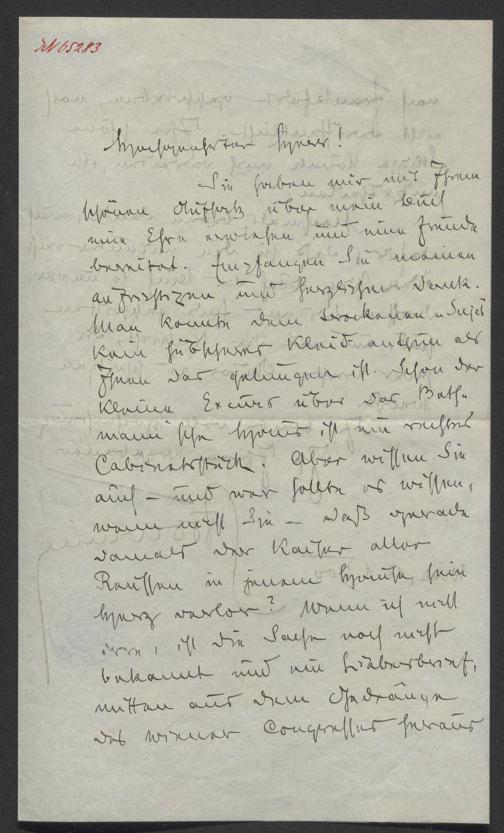 IN 65283
Hochgeehrter Herr!
Sie haben mir mit Ihrem
schönen Aufsatz über mein Buch
eine Ehre erwiesen und eine Freude
bereitet. Empfangen Sie meinen
aufrichtigen und herzlichen Dank.
Man konnte dem trockenen Sujet
kein hübscheres Kleid anthun als
Ihnen das gelungen ist. Schon der
kleine Excurs über das Beth-
mann'sche Haus ist ein wahres
Cabinetsstück. Aber wissen Sie
auch – und wer sollte es wissen,
wenn nicht Sie – daß gerade
damals der Kaiser aller
Reussen in jenem Hause sein
Herz verlor? Wenn ich nicht
irre, ist die Sache noch nicht
bekannt und ein Liebesbrief,
mitten aus dem Gedränge
des Wiener Congresses heraus